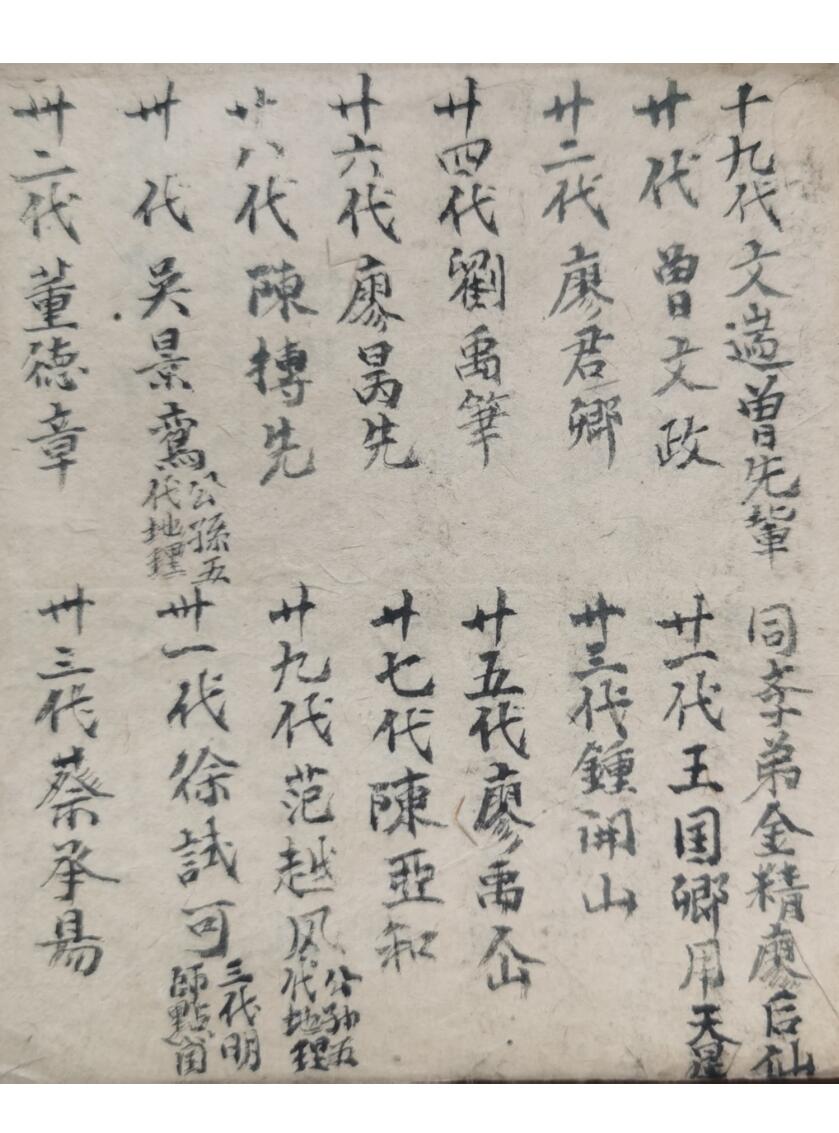 十九代文遄曾先輩
同李弟金精廖后仙
廿代曾文政
廿一代王国卿用天星
廿二代廖君卿
廿三代鍾開山
廿四代劉禹筆
廿五代廖禹仚
廿六代廖昺先
廿七代陳亞和
廿八代陳摶先
廿九代范越凤公孙五代地理
卅代吴景鸾公孫五代地理
卅一代徐試可三代明師點窗
卅二代董德章
卅三代蔡承昜